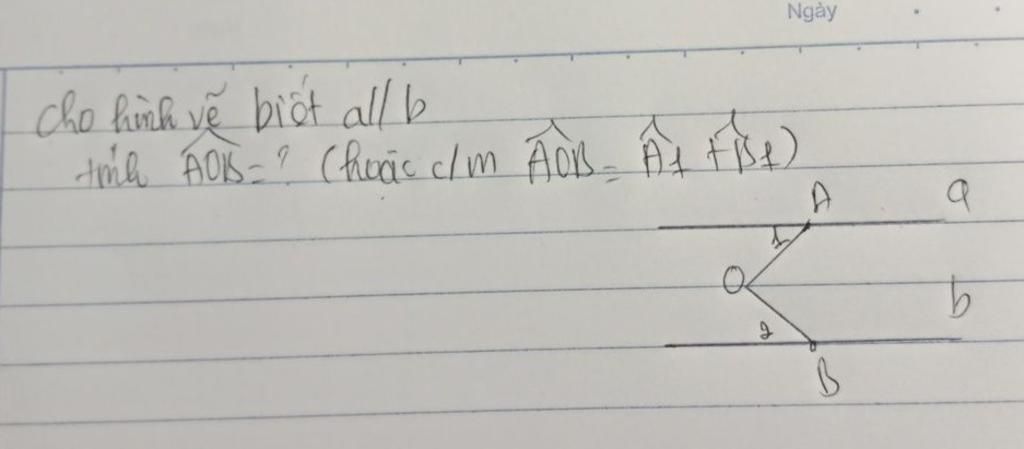 Ngày
Cho hình vẽ biết a// b
tính AOB = ? (hoặc c/m AOB = A1 + B1)
A a
1
O
b
2
B